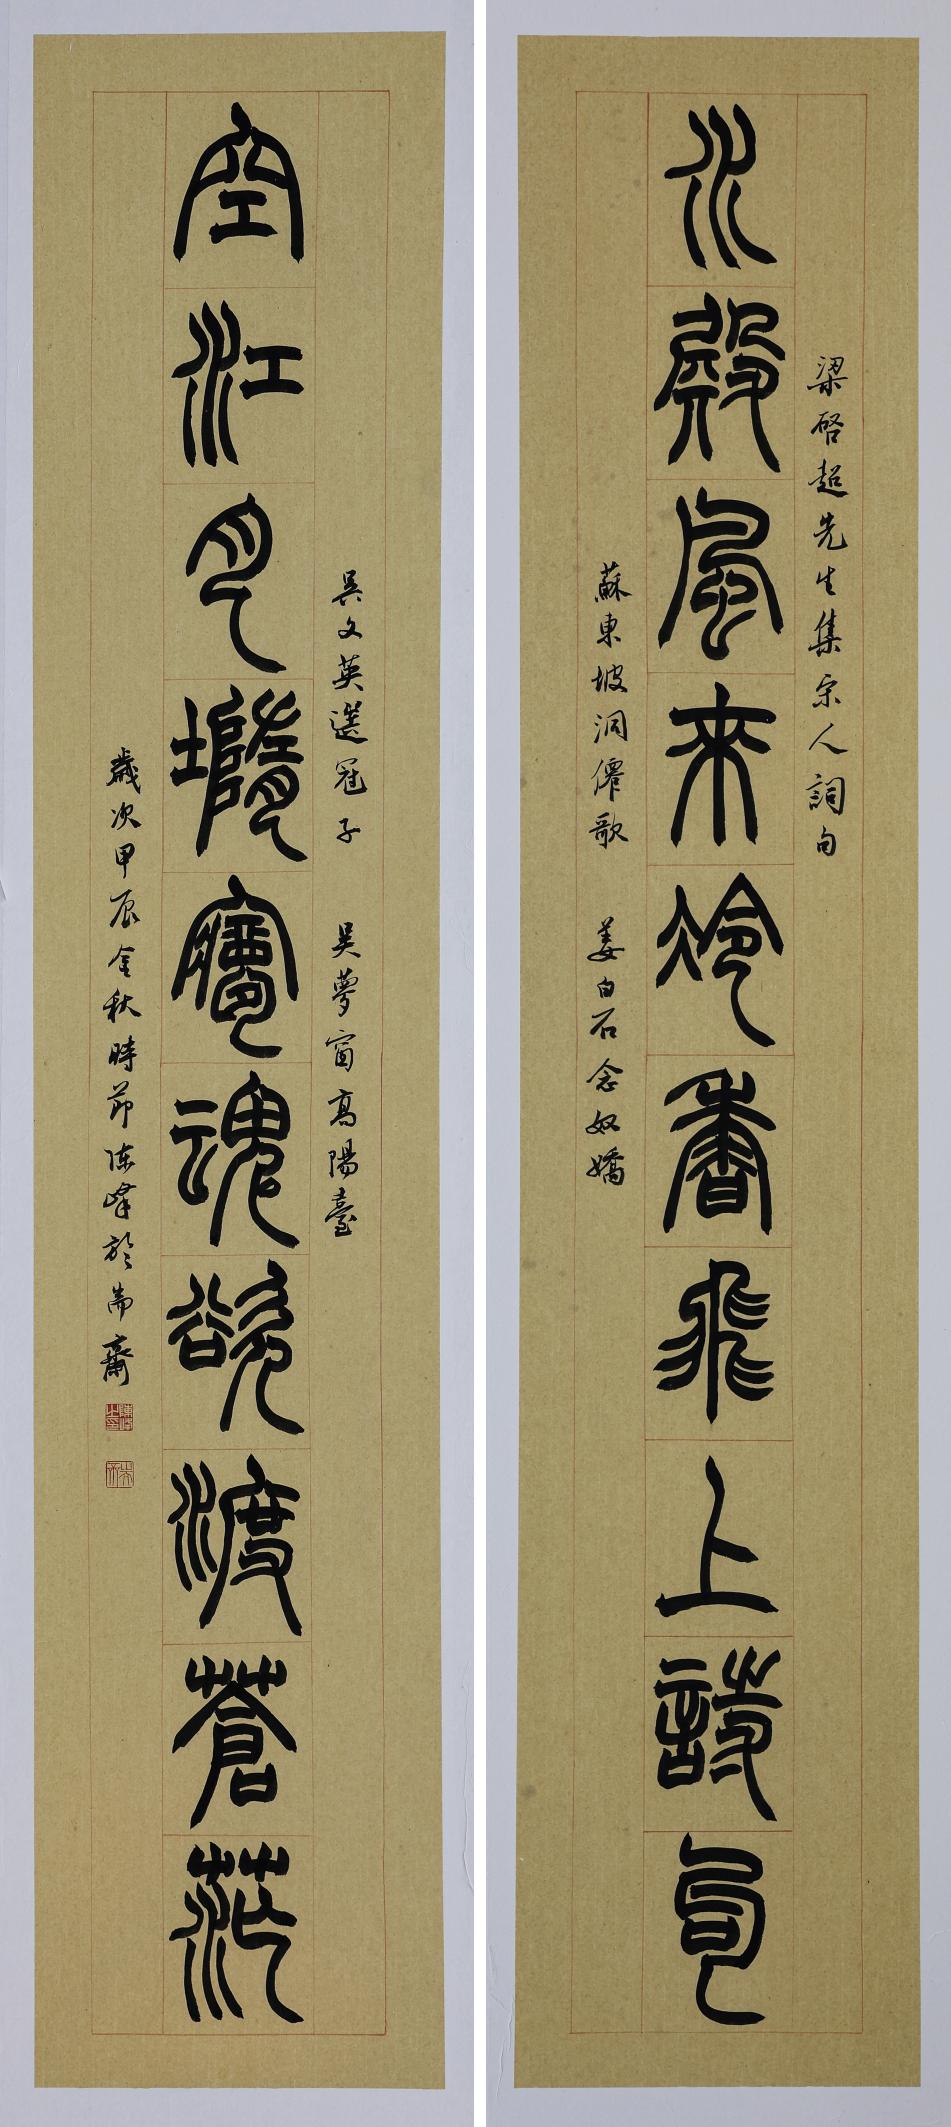 梁啓超先生集宗人詞句
水殿風來冷香飛上詩句
蘇東坡洞僊歌 姜白石念奴嬌
吳文英選冠子 吳夢窗高陽臺
空江月墮夢魂欲渡蒼茫
歲次甲辰金秋時節陈峰於耑齋